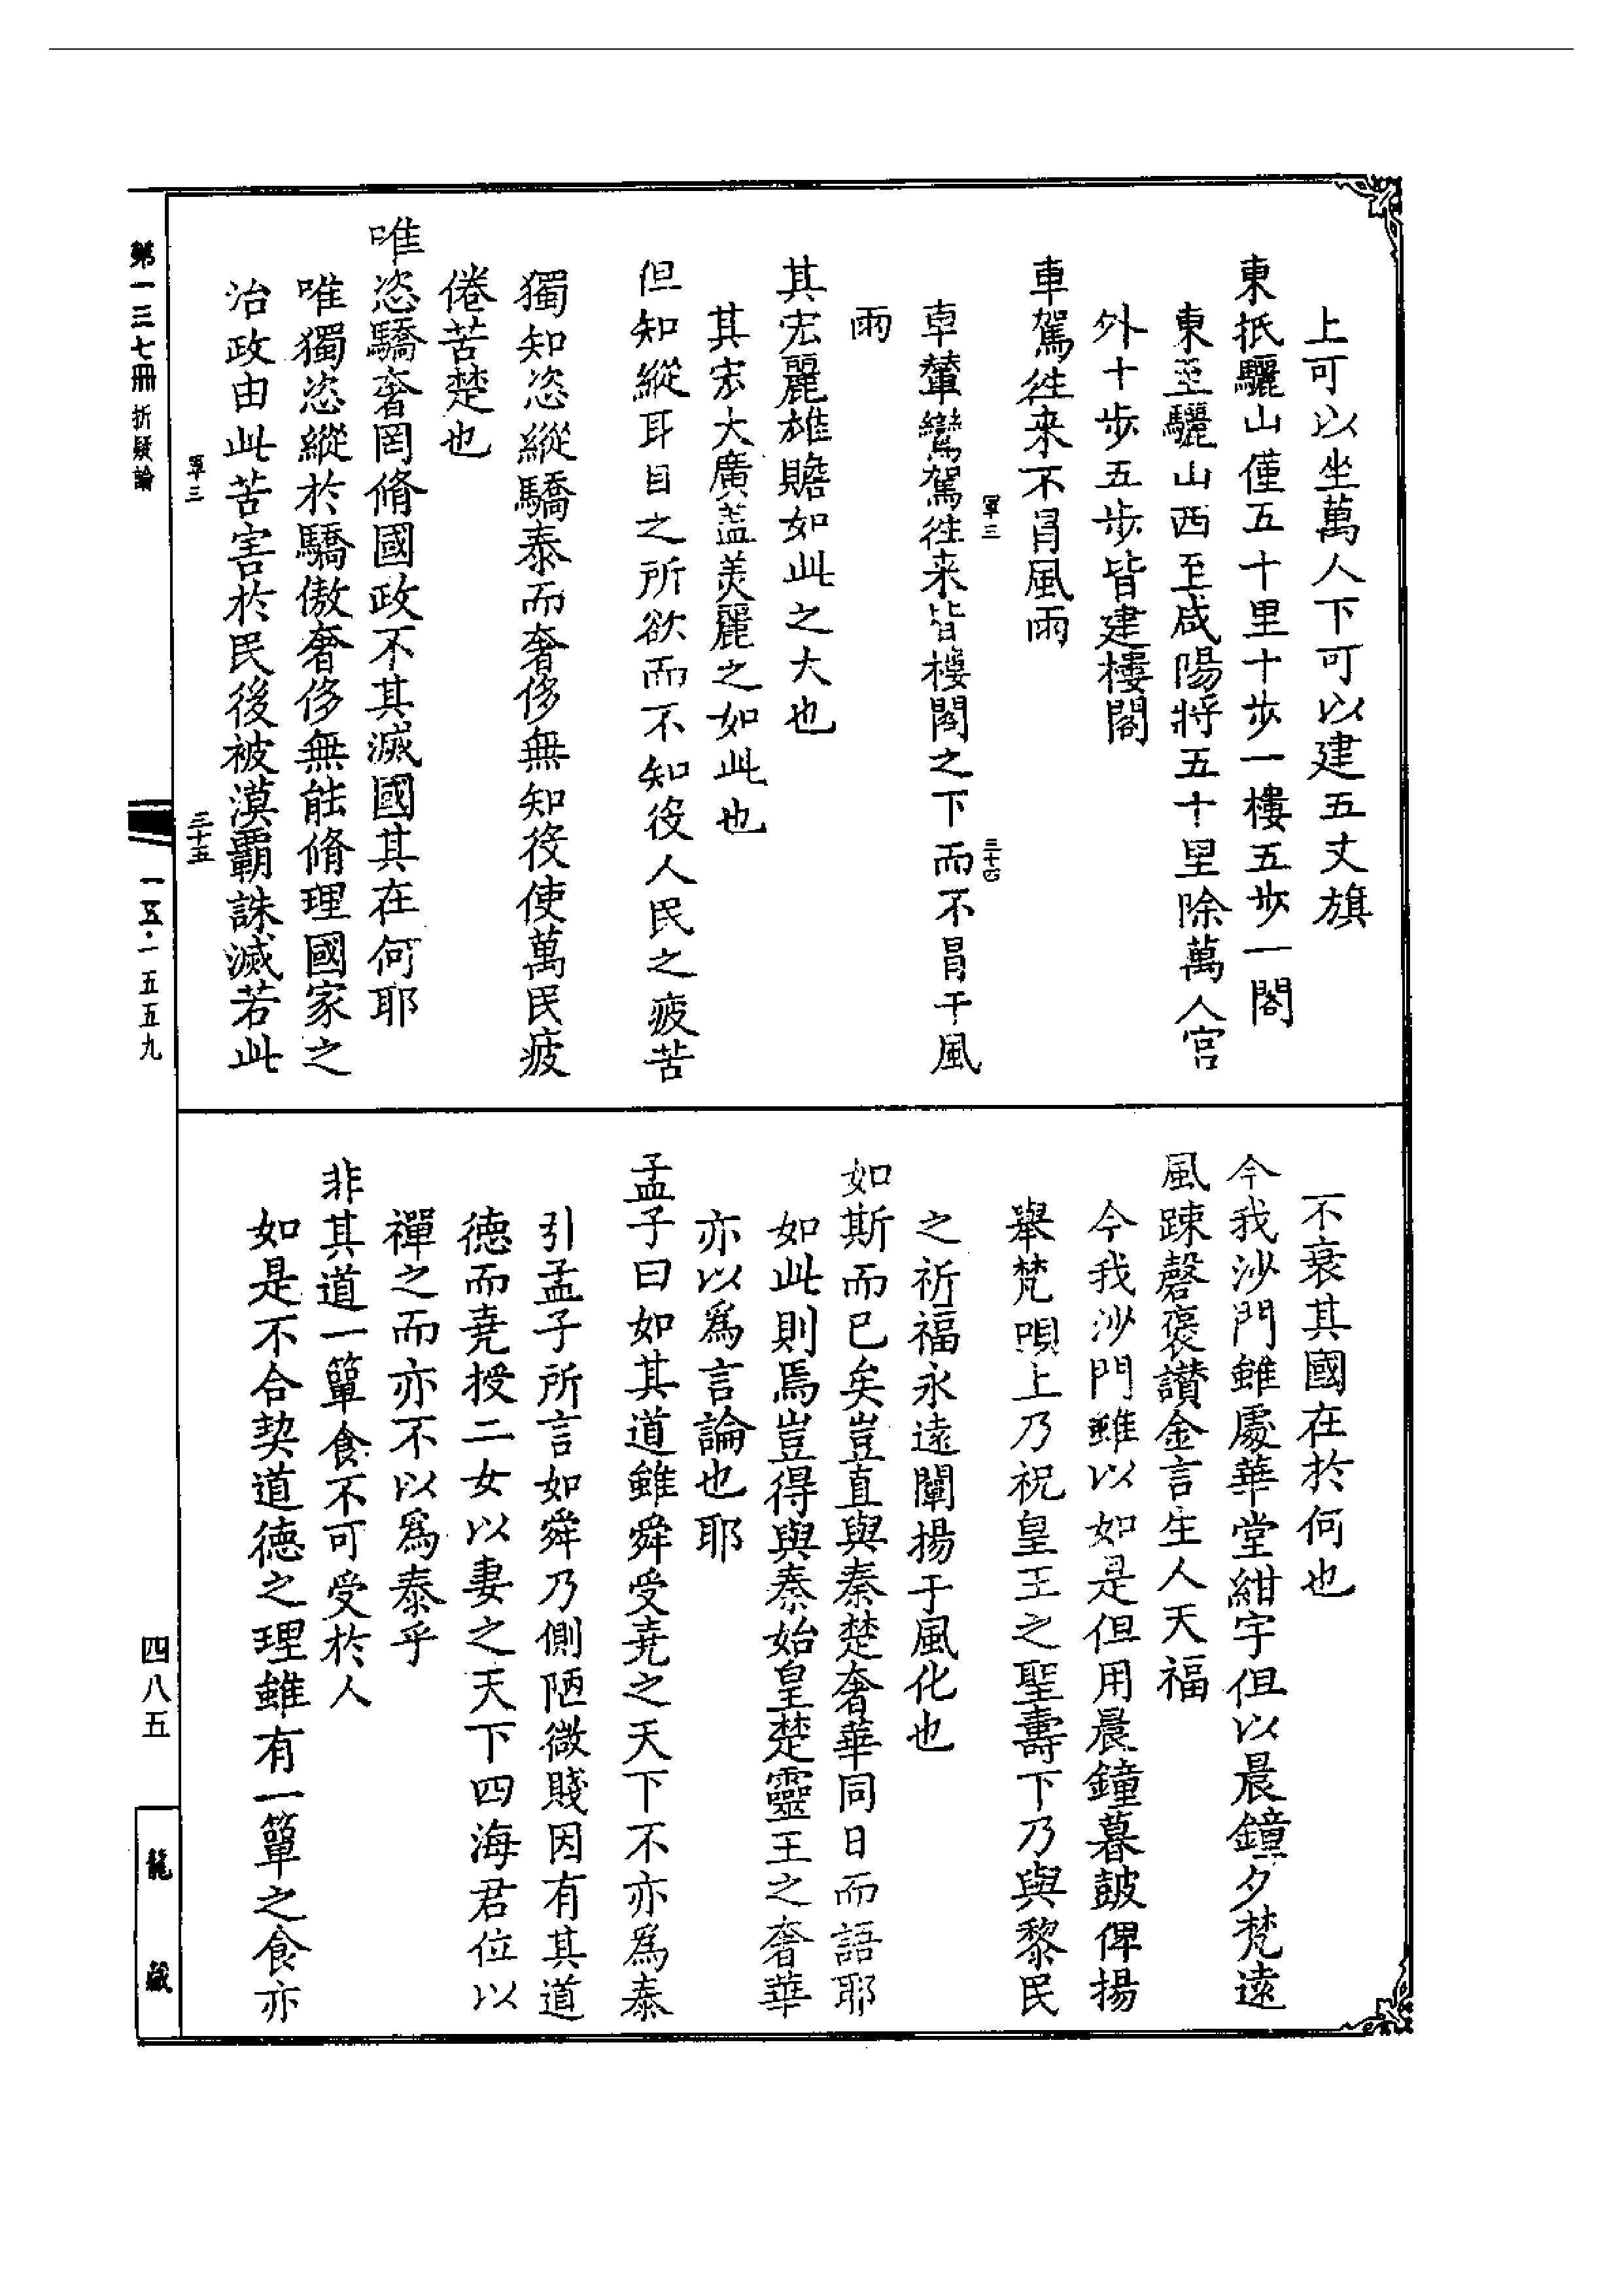 上可以坐萬人下可以建五丈旗
東抵驪山僅五十里十步一樓五步一閣
東至驪山西至咸陽將五十里除萬人宮
外十步五步皆建樓閣
車駕往來不冒風雨
車輦鸞駕往来皆樓閣之下而不冒干風
雨
其宏麗雄贍如此之大也
其宏大廣盖美麗之如此也
但知縱耳目之所欲而不知役人民之疲苦
獨知恣縱驕泰而奢侈無知役使萬民疲
倦苦楚也
唯恣驕奢罔脩國政不其滅國其在何耶
唯獨恣縱於驕傲奢侈無能脩理國家之
治政由此苦害於民後被漢霸誅滅若此
不衰其國在於何也
今我沙門雖處華堂紺宇但以晨鐘夕梵遠
風踈磬褒讃金言生人天福
今我沙門雖以如是但用晨鐘暮皷俾揚
舉梵唄上乃祝皇王之聖壽下乃與黎民
之祈福永遠闡揚于風化也
如斯而已矣豈直與秦楚奢華同日而語耶
如此則焉豈得與秦始皇楚靈王之奢華
亦以爲言論也耶
孟子曰如其道雖舜受堯之天下不亦爲泰
引孟子所言如舜乃側陋微賤因有其道
德而堯授二女以妻之天下四海君位以
禪之而亦不以爲泰乎
非其道一簞食不可受於人
如是不合契道德之理雖有一簞之食亦
第一三七冊 折疑論
一五·一五五九
四八五
龍藏
三十四
三十五